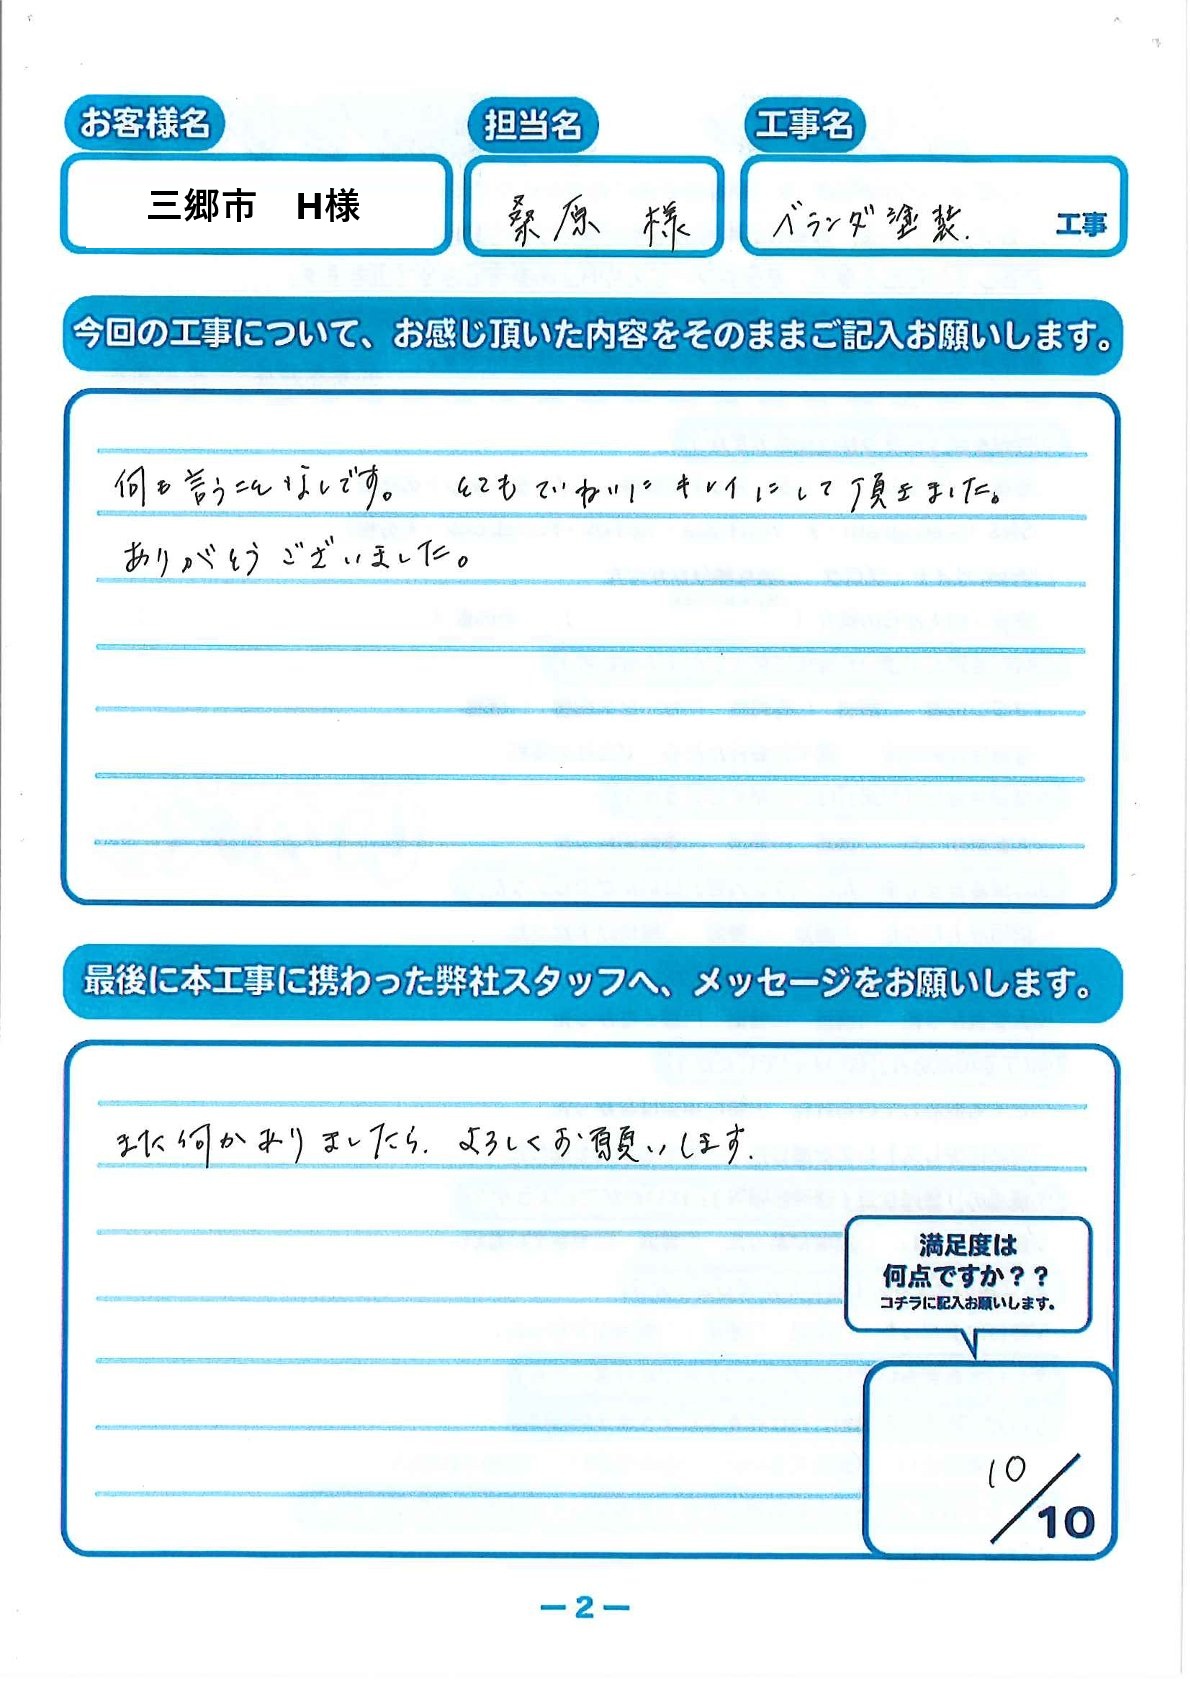 お客様名 担当名 工事名
三郷市 H様 桑原 様 ベランダ塗装. 工事
今回の工事について、お感じ頂いた内容をそのままご記入お願いします。
何も言うことなしです。 とてもていねいにキレイにして頂きました。
ありがとうございました。
最後に本工事に携わった弊社スタッフへ、メッセージをお願いします。
また何かありましたら. よろしくお願いします.
満足度は
何点ですか？？
コチラに記入お願いします。
10/10
ー2ー